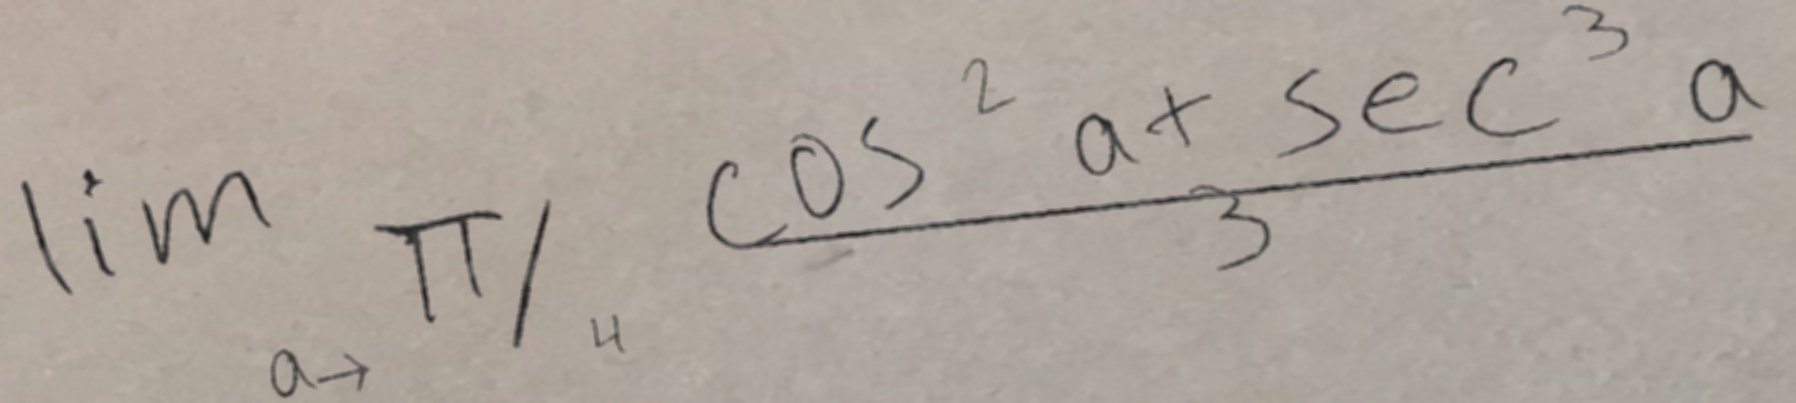 lim a→ π/4 cos² a + sec³ a / 3